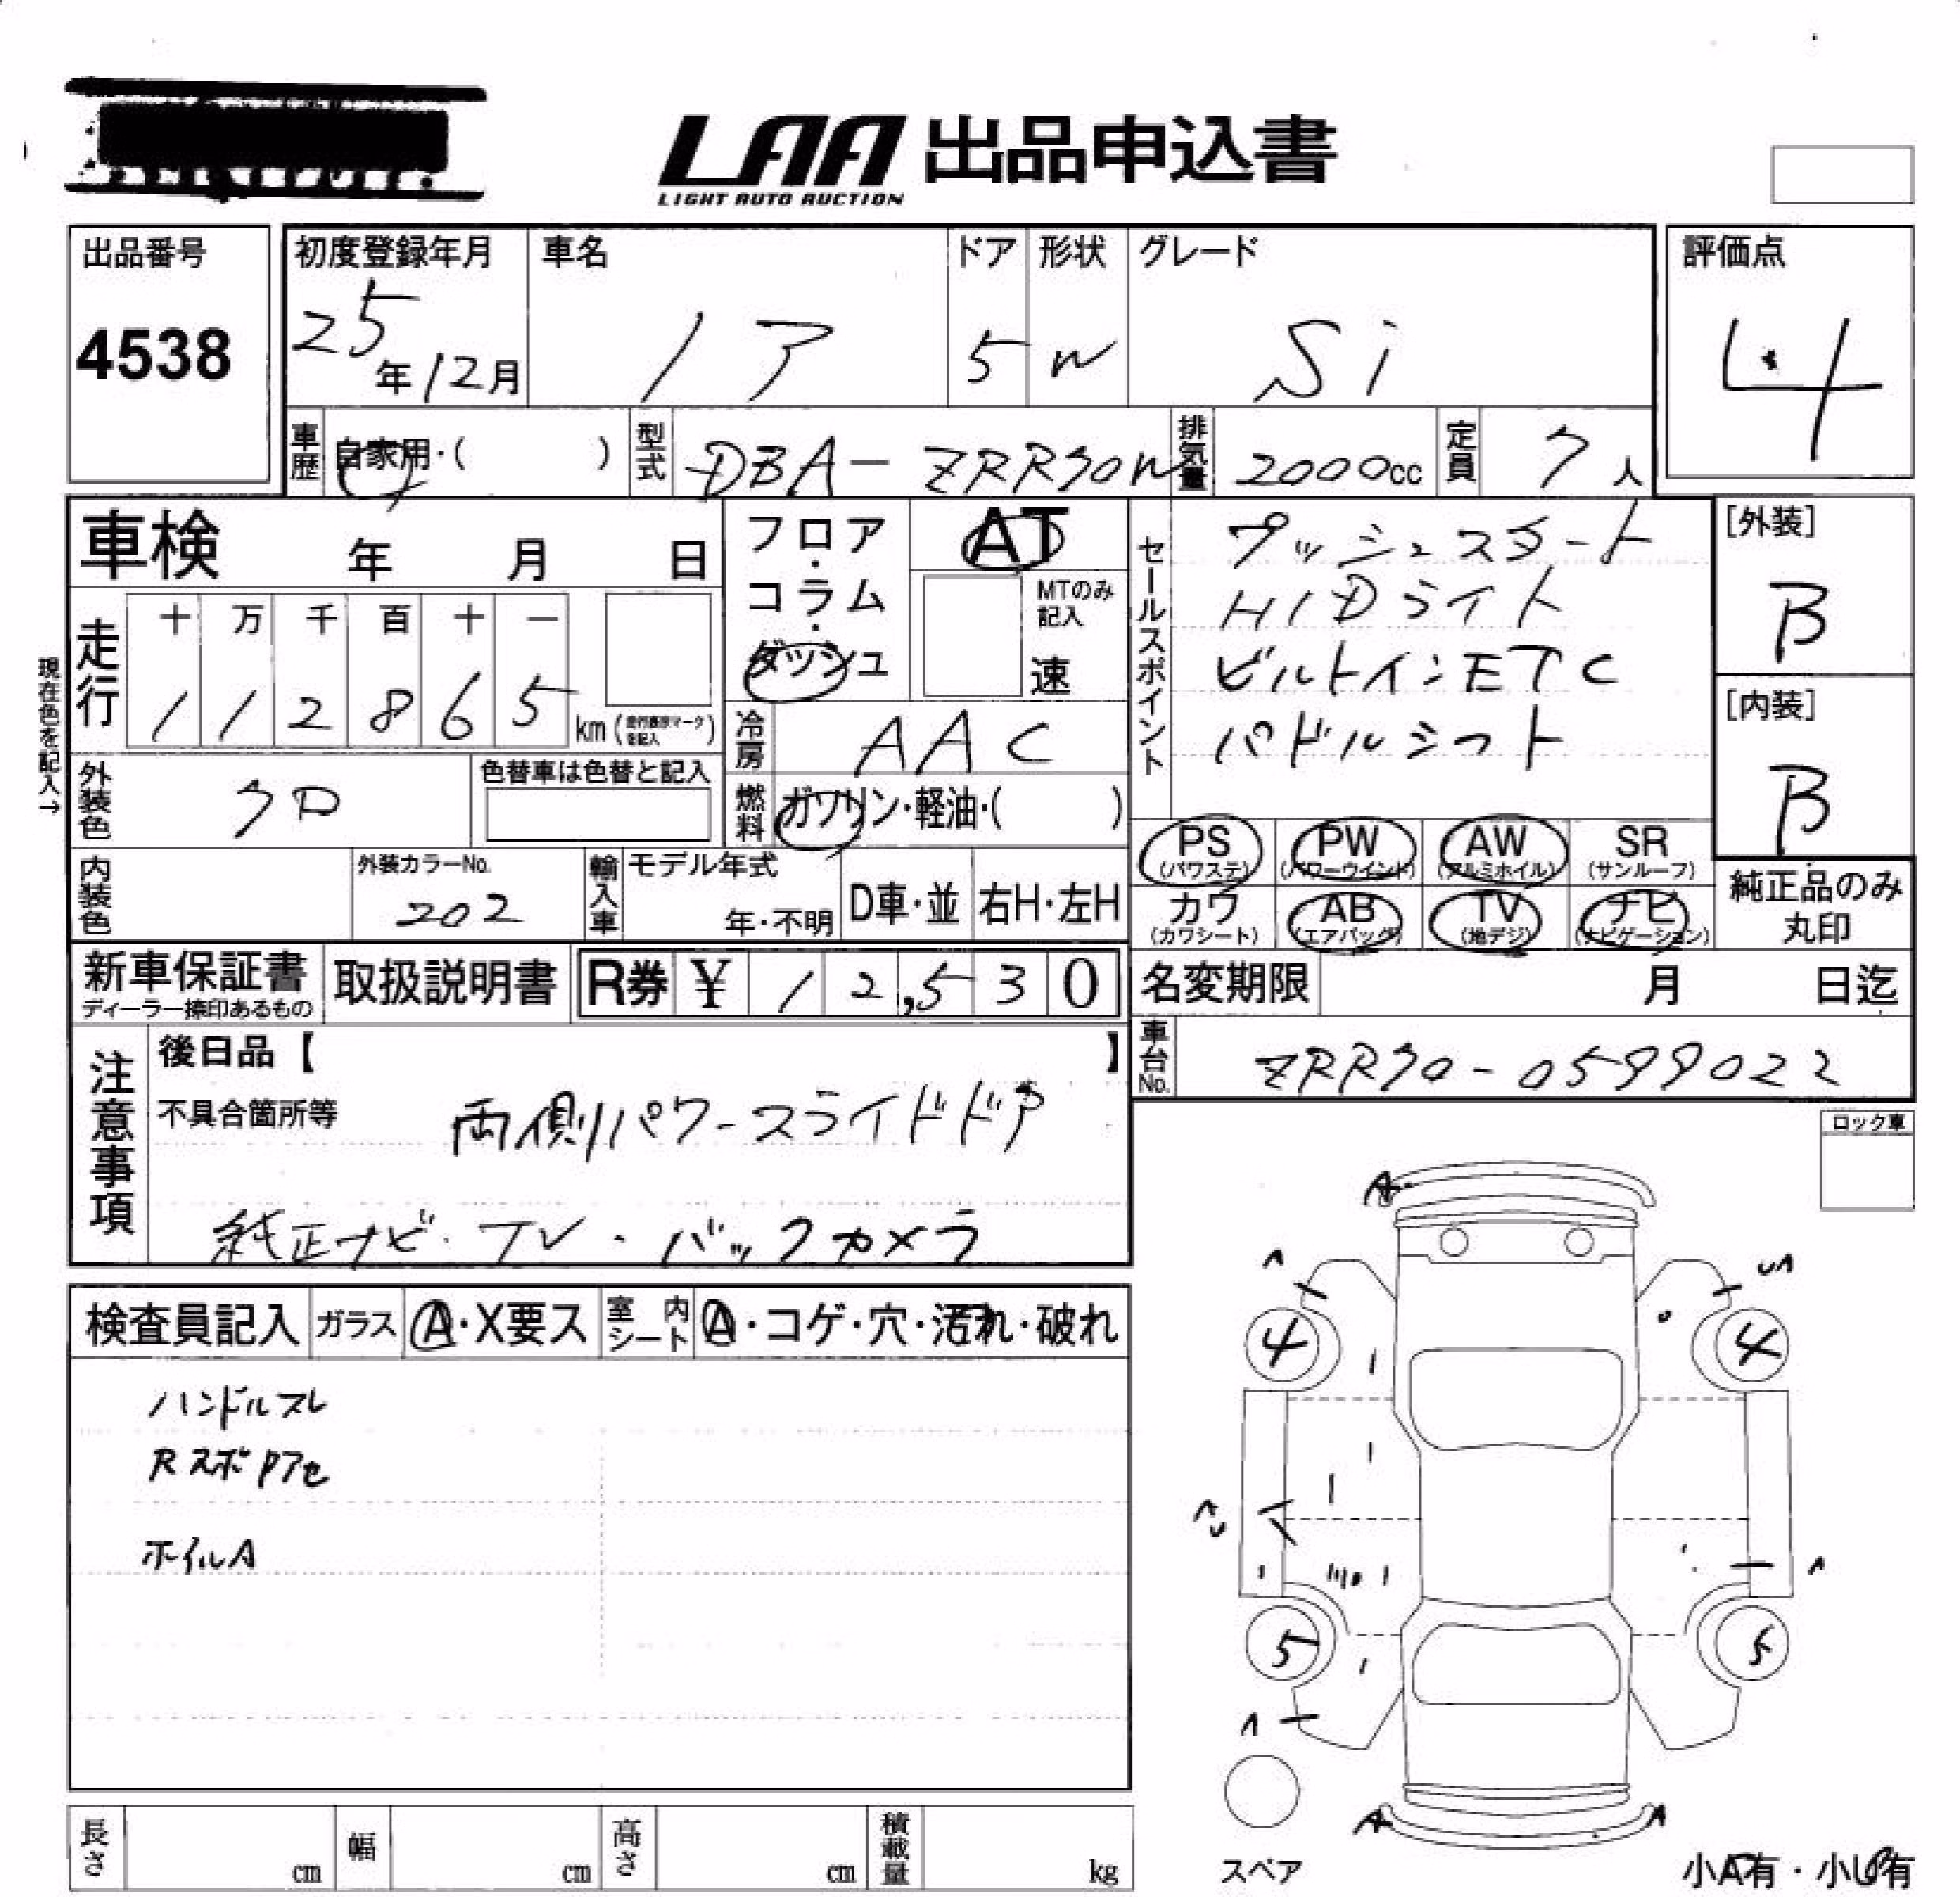 LAA 出品申込書
LIGHT AUTO AUCTION
出品番号
4538
初度登録年月
25年12月
車名
ノア
ドア
5
形状
W
グレード
Si
評価点
4
車歴
自家用・( )
型式
DBA-ZRR70W
排気量
2000cc
定員
7人
車検 年 月 日
フロア・コラム・ダッシュ
AT
MTのみ記入
速
セールスポイント
プッシュスタート
HIDライト
ビルトインETC
パドルシフト
[外装]
B
[内装]
B
現在色を記入→
走行
十 万 千 百 十 一
1 1 2 8 6 5 km(走行表示マークを記入)
冷房
AAC
外装色
クロ
色替車は色替と記入
燃料
ガソリン・軽油・( )
PS (パワステ)
PW (パワーウインド)
AW (アルミホイル)
SR (サンルーフ)
カワ (カワシート)
AB (エアバッグ)
TV (地デジ)
ナビ (ナビゲーション)
純正品のみ丸印
内装色
外装カラーNo.
202
輸入車
モデル年式
年・不明
D車・並
右H・左H
新車保証書
ディーラー捺印あるもの
取扱説明書
R券 ¥ 12,530
名変期限 月 日迄
車台No.
ZRR70-0599022
注意事項
後日品【 】
不具合箇所等
両側パワースライドドア
純正ナビ・TV・バックカメラ
ロック車
検査員記入
ガラス
A・X要ス
室内シート
A・コゲ・穴・汚れ・破れ
ハンドルスレ
ホイルA
A
A
UA
4
4
AU
A
5
5
A
A
A
スペア
小A有・小U有
長さ cm
幅 cm
高さ cm
積載量 kg